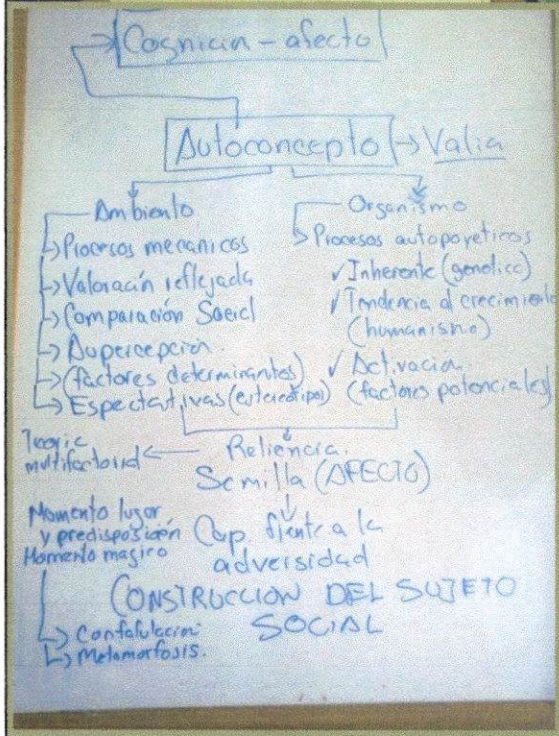 Cognición - afecto
Autoconcepto → Valia
Ambiento
Procesos mecanicos
Valoración reflejada
Comparación Social
Aupercepción.
(factores determinantes)
Espectativas (estereotipo)
Organismo
Procesos autopoyeticos
✓ Inherente (genetico)
✓ Tendencia al crecimiento
(humanismo)
✓ Activación
(factores potenciales)
Reliencia.
Semilla (AFECTO)
Teoria
multifactorial
Cap. frente a la
adversidad
Momento lugar
y predisposición
Momento magico
CONSTRUCCION DEL SUJETO
SOCIAL
Confabulación
Metamorfosis.